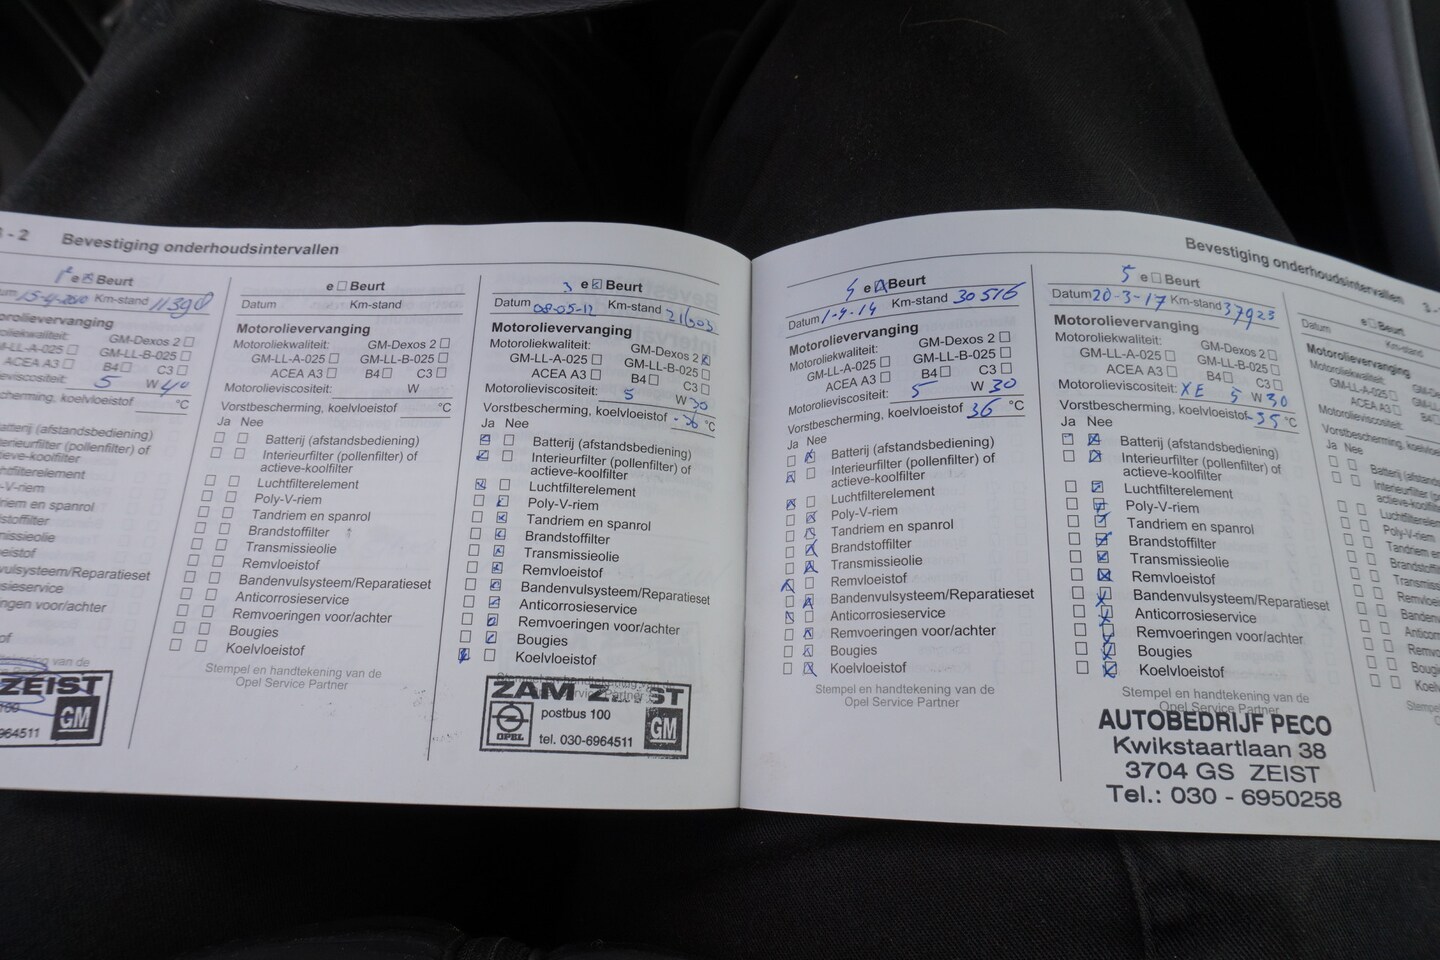 - 2 Bevestiging onderhoudsintervallen
1e Beurt
15-4-2010 Km-stand 11390
orolievervanging
oliekwaliteit: GM-Dexos 2
M-LL-A-025 GM-LL-B-025
ACEA A3 B4 C3
olieviscositeit: 5 W 40
cherming, koelvloeistof °C
atterij (afstandsbediening)
nterieurfilter (pollenfilter) of
ctieve-koolfilter
uchtfilterelement
y-V-riem
ndriem en spanrol
stoffilter
missieolie
eistof
vulsysteem/Reparatieset
sieservice
ingen voor/achter
of
ng van de
ZEIST
100
964511
GM
e Beurt
Datum Km-stand
Motorolievervanging
Motoroliekwaliteit: GM-Dexos 2
GM-LL-A-025 GM-LL-B-025
ACEA A3 B4 C3
Motorolieviscositeit: W
Vorstbescherming, koelvloeistof °C
Ja Nee
Batterij (afstandsbediening)
Interieurfilter (pollenfilter) of
actieve-koolfilter
Luchtfilterelement
Poly-V-riem
Tandriem en spanrol
Brandstoffilter
Transmissieolie
Remvloeistof
Bandenvulsysteem/Reparatieset
Anticorrosieservice
Remvoeringen voor/achter
Bougies
Koelvloeistof
Stempel en handtekening van de
Opel Service Partner
3 e Beurt
Datum 08-05-12 Km-stand 21603
Motorolievervanging
Motoroliekwaliteit: GM-Dexos 2
GM-LL-A-025 GM-LL-B-025
ACEA A3 B4 C3
Motorolieviscositeit: 5 W 30
Vorstbescherming, koelvloeistof -36 °C
Ja Nee
Batterij (afstandsbediening)
Interieurfilter (pollenfilter) of
actieve-koolfilter
Luchtfilterelement
Poly-V-riem
Tandriem en spanrol
Brandstoffilter
Transmissieolie
Remvloeistof
Bandenvulsysteem/Reparatieset
Anticorrosieservice
Remvoeringen voor/achter
Bougies
Koelvloeistof
Stempel en handtekening van de
Opel Service Partner
ZAM ZEIST
OPEL
postbus 100
tel. 030-6964511
GM
Bevestiging onderhoudsintervallen 3 -
4 e Beurt
Datum 1-4-14 Km-stand 30516
Motorolievervanging
Motoroliekwaliteit: GM-Dexos 2
GM-LL-A-025 GM-LL-B-025
ACEA A3 B4 C3
Motorolieviscositeit: 5 W 30
Vorstbescherming, koelvloeistof 36 °C
Ja Nee
Batterij (afstandsbediening)
Interieurfilter (pollenfilter) of
actieve-koolfilter
Luchtfilterelement
Poly-V-riem
Tandriem en spanrol
Brandstoffilter
Transmissieolie
Remvloeistof
Bandenvulsysteem/Reparatieset
Anticorrosieservice
Remvoeringen voor/achter
Bougies
Koelvloeistof
Stempel en handtekening van de
Opel Service Partner
5 e Beurt
Datum 20-3-17 Km-stand 37923
Motorolievervanging
Motoroliekwaliteit: GM-Dexos 2
GM-LL-A-025 GM-LL-B-025
ACEA A3 B4 C3
Motorolieviscositeit: XE 5 W 30
Vorstbescherming, koelvloeistof -35 °C
Ja Nee
Batterij (afstandsbediening)
Interieurfilter (pollenfilter) of
actieve-koolfilter
Luchtfilterelement
Poly-V-riem
Tandriem en spanrol
Brandstoffilter
Transmissieolie
Remvloeistof
Bandenvulsysteem/Reparatieset
Anticorrosieservice
Remvoeringen voor/achter
Bougies
Koelvloeistof
Stempel en handtekening van de
Opel Service Partner
AUTOBEDRIJF PECO
Kwikstaartlaan 38
3704 GS ZEIST
Tel.: 030 - 6950258
e Beurt
Datum Km-stand
Motorolievervanging
Motoroliekwaliteit:
GM-LL-A-025
ACEA A3
Motorolieviscositeit:
Vorstbescherming, koelv
Ja Nee
Batterij (afstandsbe
Interieurfilter (po
actieve-koolfilte
Luchtfiltereleme
Poly-V-riem
Tandriem en
Brandstoffi
Transmiss
Remvloei
Banden
Anticorr
Remvo
Bougi
Koelv
Stempel